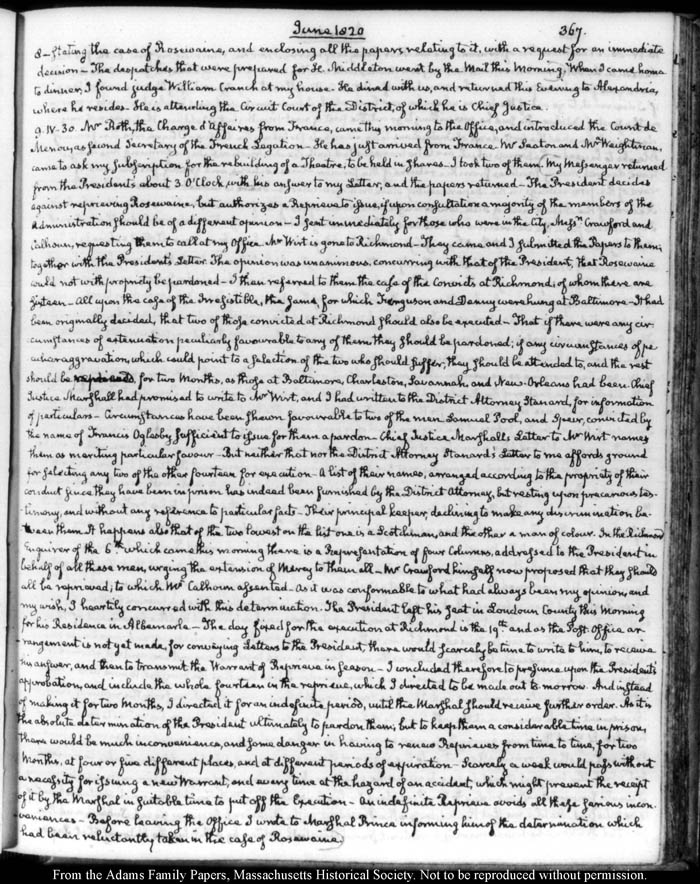 June 1820
367.
8 – stating the case of Rosewaine, and enclosing all the papers relating to it, with a request for an immediate
decision – The despatches that were prepared for H. Middleton went by the Mail this Morning. When I came home
to dinner, I found Judge William Cranch at my house. He dined with us, and returned this Evening to Alexandria,
where he resides. He is attending the Circuit Court of the District, of which he is Chief Justice.
9. IV. 30. Mr Roth, the Chargé d'Affaires from France, came this morning to the Office, and introduced the Count de
Menou, as second Secretary of the French Legation – He has just arrived from France. Mr Seaton and Mr Weightman,
came to ask my subscription for the rebuilding of a Theatre, to be held in shares. I took two of them. My Messenger returned
from the President's about 3 O'Clock, with his answer to my Letter, and the papers returned – The President decides
against reprieving Rosewaine, but authorizes a Reprieve to issue, if upon consultation a majority of the members of the
Administration should be of a different opinion – I sent immediately for those who were in the City. Messrs Crawford and
Calhoun, requesting them to call at my Office. Mr Wirt is gone to Richmond – They came and I submitted the Papers to them,
together with the President's Letter. The opinion was unanimous, concurring with that of the President, that Rosewaine
could not with propriety be pardoned – I then referred to them the case of the Convicts at Richmond, of whom there are
sixteen – All upon the case of the Irresistible, the same, for which Ferguson and Denny were hung at Baltimore – It had
been originally decided, that two of those convicted at Richmond should also be executed – That if there were any cir-
cumstances of extenuation peculiarly favourable to any of them they should be pardoned; if any circumstances of pe-
culiar aggravation, which could point to a selection of the two who should suffer, they should be attended to, and the rest
should be reprieved, for two Months, as those at Baltimore, Charleston, Savannah, and New-Orleans had been. Chief
Justice Marshall had promised to write to Mr Wirt, and I had written to the District Attorney Stanard, for information
of particulars – Circumstances have been shewn favourable to two of the men, Samuel Pool, and Spear, convicted by
the name of Francis Oglesby sufficient to issue for them a pardon – Chief Justice Marshall's Letter to Mr Wirt names
them as meriting particular favour – But neither that nor the District Attorney Stanard's Letter to me affords ground
for selecting any two of the other fourteen for execution – A list of their names, arranged according to the propriety of their
conduct since they have been in prison has indeed been furnished by the District Attorney, but resting upon precarious tes-
timony, and without any reference to particular facts – Their principal keeper, declining to make any discrimination be-
tween them. It happens also that of the two lowest on the list one is a Scotchman, and the other a man of colour. In the Richmond
Enquirer of the 6th which came this morning there is a Representation of four Columns, addressed to the President in
behalf of all these men, urging the extension of Mercy to them all – Mr Crawford himself now proposed that they should
all be reprieved; to which Mr Calhoun assented – As it was conformable to what had always been my opinion, and
my wish, I heartily concurred with this determination. The President left his seat in Loudoun County this Morning
for his Residence in Albemarle – The day fixed for the execution at Richmond is the 19th and as the Post Office ar-
rangement is not yet made, for conveying Letters to the President, there would scarcely be time to write to him, to receive
an answer, and then to transmit the Warrant of Reprieve in season – I concluded therefore to presume upon the President's
approbation, and include the whole fourteen in the reprieve, which I directed to be made out to-morrow. And instead
of making it for two Months, I directed it for an indefinite period, until the Marshal should receive further order. As it is
the absolute determination of the President ultimately to pardon them; but to keep them a considerable time in prison,
there would be much inconvenience, and some danger in having to renew Reprieves from time to time, for two
Months, at four or five different places, and at different periods of expiration – Scarcely a week would pass without
a necessity for issuing a new Warrant, and every time at the hazard of an accident, which might prevent the receipt
of it by the Marshal in suitable time to put off the Execution – An indefinite Reprieve avoids all these serious incon-
veniences – Before leaving the Office I wrote to Marshal Prince informing him of the determination which
had been reluctantly taken in the case of Rosewaine.
From the Adams Family Papers, Massachusetts Historical Society. Not to be reproduced without permission.